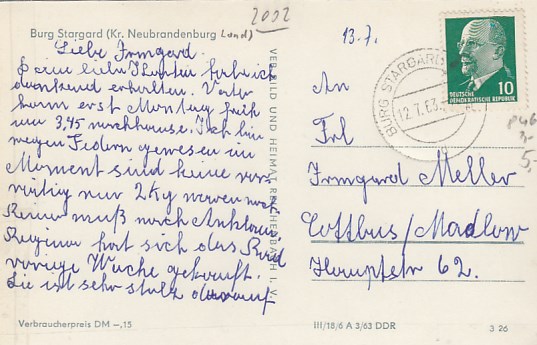 2002
Burg Stargard (Kr. Neubrandenburg Land)
Liebe Irmgard.
Deine liebe Karten habe ich
dankend erhalten. Vater
kam erst Montag früh
um 3,45 nachhause. Ich bin
wegen Federn gewesen im
Moment sind keine vor-
rätig nur 2 Kg waren noch
Reiner muß nach Anklam
Regina hat sich das Rad
vorige Woche gekauft.
Sie ist sehr stolz darauf
Verbraucherpreis DM –,15
VERLAG BILD UND HEIMAT REICHENBACH I. V.
13.7.
BURG STARGARD
12.7.63.
10
DEUTSCHE
DEMOKRATISCHE REPUBLIK
5,-
An
Frl
Irmgard Meller
Cottbus/Madlow
Hauptstr 62.
III/18/6 A 3/63 DDR
3 26